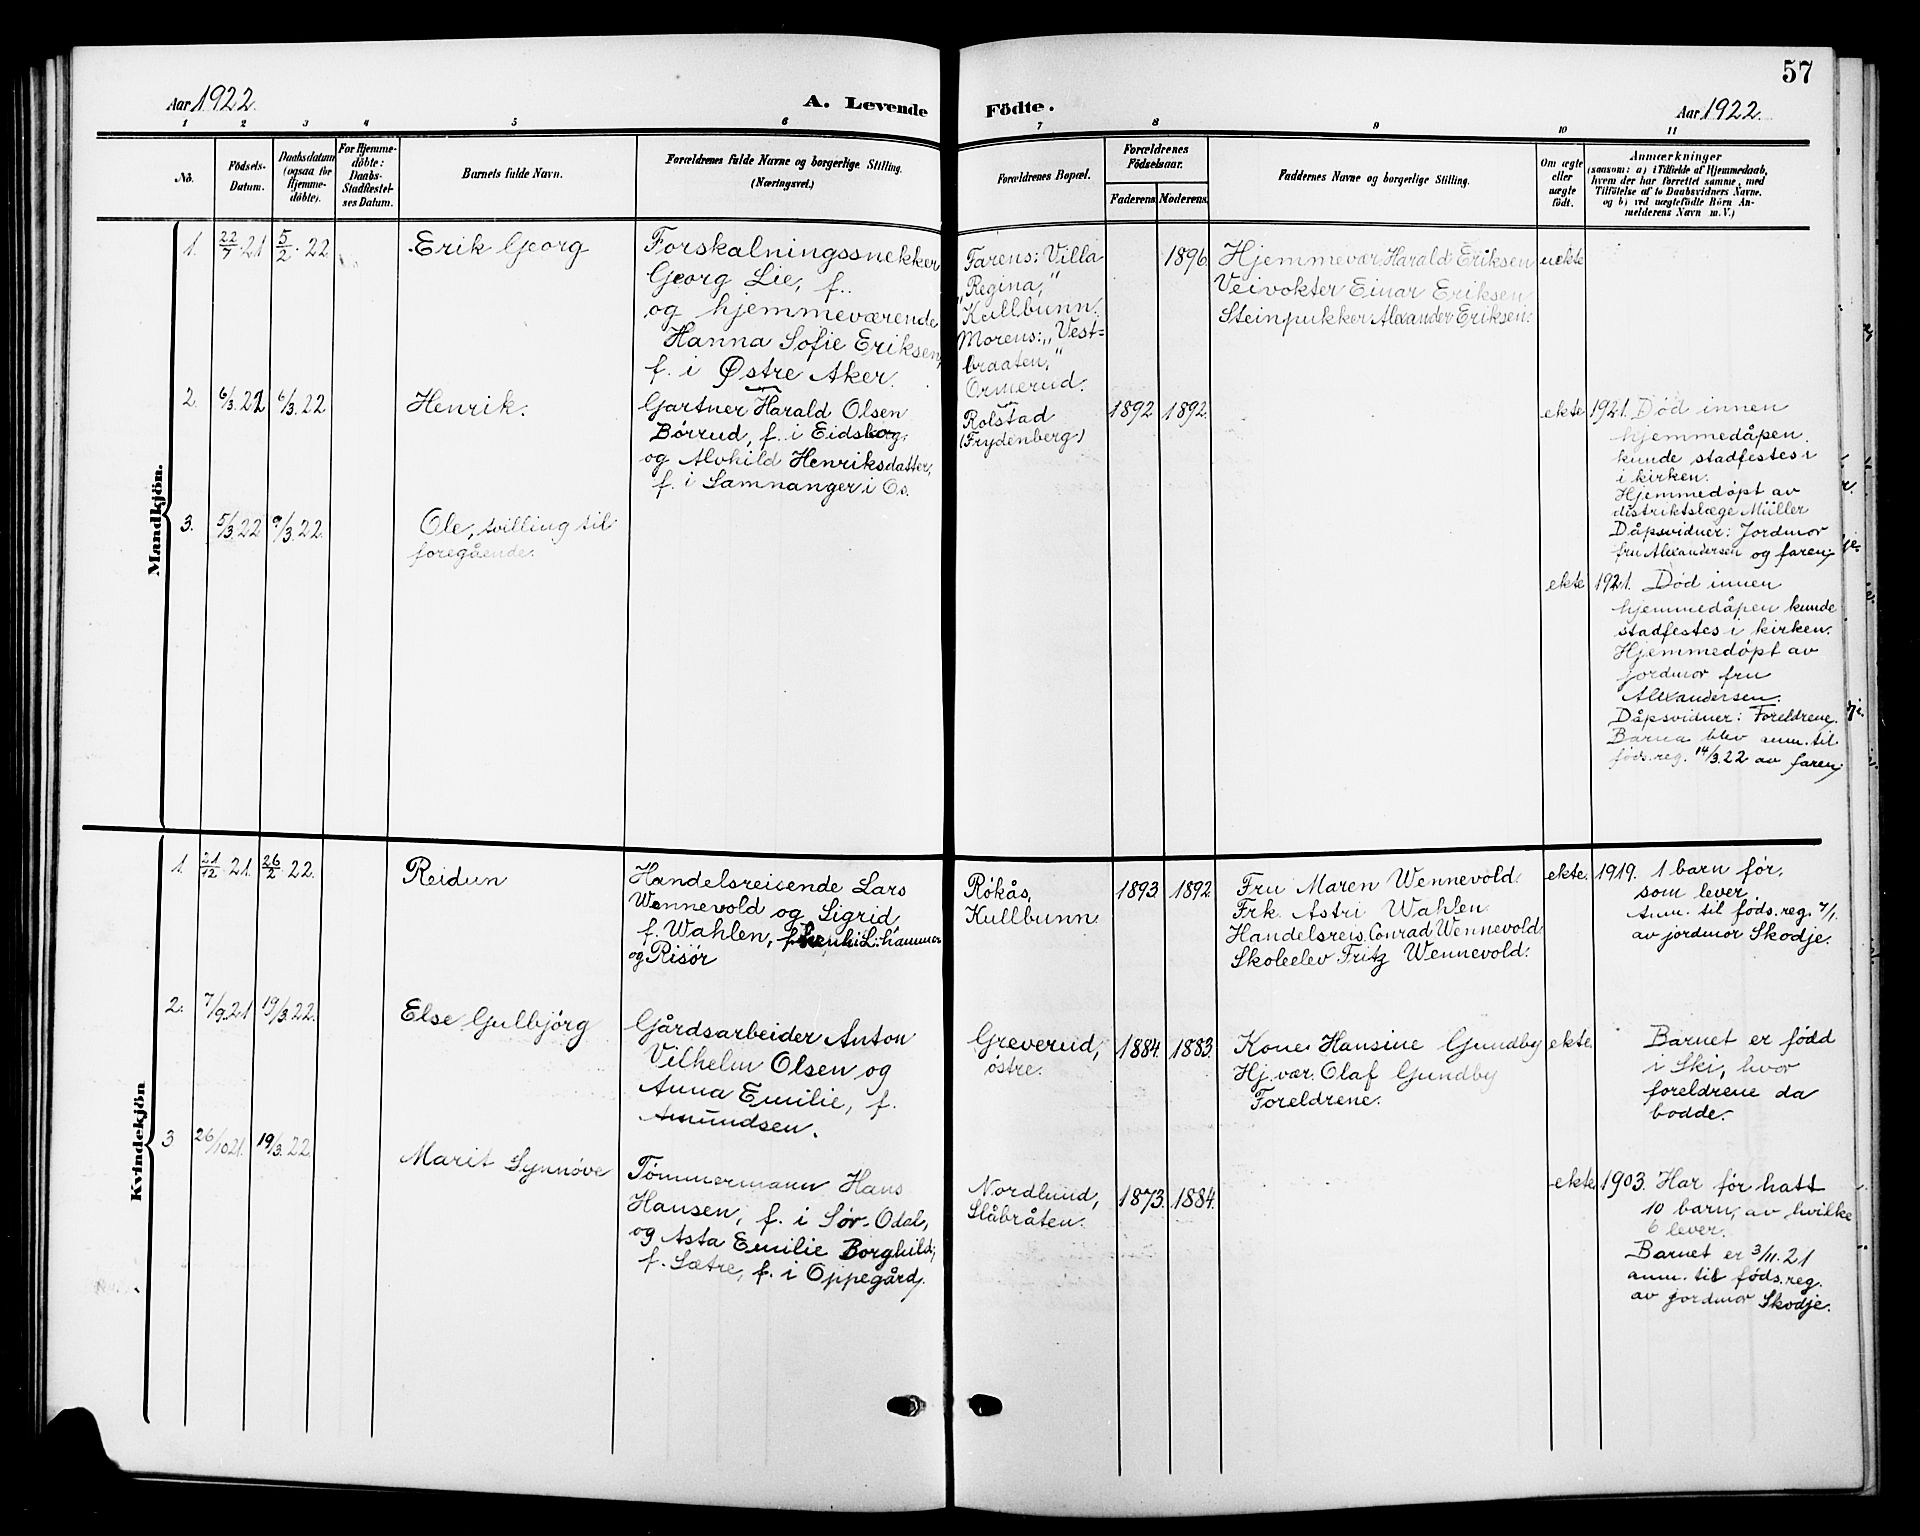 57
Aar 1922.
A. Levende
Födte.
Aar 1922.
1 2 3 4 5 6 7 8 9 10 11
No.
Födsels-
Datum.
Daabsdatum
(ogsaa for
Hjemme-
döbte).
For Hjemme-
döbte:
Daabs-
Stadfæstel-
ses Datum.
Barnets fulde Navn.
Forældrenes fulde Navne og borgerlige Stilling.
(Næringsvei.)
Forældrenes Bopæl.
Forældrenes
Födselsaar.
Faderens.
Moderens.
Faddernes Navne og borgerlige Stilling.
Om ægte
eller
uægte
födt.
Anmærkninger
(saasom: a) i Tilfælde af Hjemmedaab,
hvem der har forrettet samme, med
Tilföielse af to Daabsvidners Navne,
og b) ved uægtefödte Börn An-
melderens Navn m. V.)
Mandkjön.
1. 22/7 21 5/2 22
Erik Georg
Forskalningssnekker
Georg Lie, f..
og hjemmeværende
Hanna Sofie Eriksen,
f. i Østre Aker.
Farens: Villa
"Regina,"
Kullbunn.
Morens: "Vest-
braaten,"
Ormerud.
1896
Hjemmevær Harald Eriksen
Veivokter Einar Eriksen
Steinpukker Alexander Eriksen.
uekte
2. 6/3.22 6/3.22
Henrik.
Gartner Harald Olsen
Børrud, f. i Eidskog,
og Alvhild Henriksdatter,
f. i Samnanger i Os.
Rolstad
(Frydenberg)
1892 1892.
ekte
1921. Død innen
hjemmedåpen
kunde stadfestes i
i kirken.
Hjemmedøpt av
distriktslæge Müller
Dåpsvidner: Jordmor
fru Alexandersen og faren.
3. 5/3.22 9/3.22.
Ole, tvilling til
foregående.
ekte
1921. Død innen
hjemmedåpen kunde
stadfestes i kirken.
Hjemmedøpt av
jordmor fru
Alexandersen.
Dåpsvidner: Foreldrene.
Barna blev anm. til
føds.reg. 14/3.22 av faren.
Kvindekjön
1. 21/12 21. 26/2 22.
Reidun
Handelsreisende Lars
Wennevold og Sigrid
f. Wahlen, L:hammer
og Risør
Røkås,
Kullbunn
1893 1892
Fru Maren Wennevold.
Frk. Astri Wahlen.
Handelsreis. Conrad Wennevold.
Skoleelev Fritz Wennevold.
ekte.
1919. 1 barn før,
som lever
Anm. til føds.reg. 7/1.
av jordmor Skodje.
2. 7/9.21 19/3.22.
Else Gulbjörg
Gårdsarbeider Anton
Vilhelm Olsen og
Anna Emilie, f.
Amundsen.
Greverud,
østre.
1884. 1883.
Kone Hansine Gundby
Hj.vær. Olaf Gundby
Foreldrene.
ekte.
Barnet er född
i Ski, hvor
foreldrene da
bodde.
3 26/10 21. 19/3.22.
Marit Synnöve
Tømmermann Hans
Hansen, f. i Sør-Odal,
og Asta Emilie Borghild,
f. Sætre, f. i Oppegård.
Nordlund,
Slåbråten.
1873. 1884.
ekte
1903. Har før hatt
10 barn, av hvilke
6 lever.
Barnet er 3/11.21
anm. til föds.reg.
av jordmor Skodje.